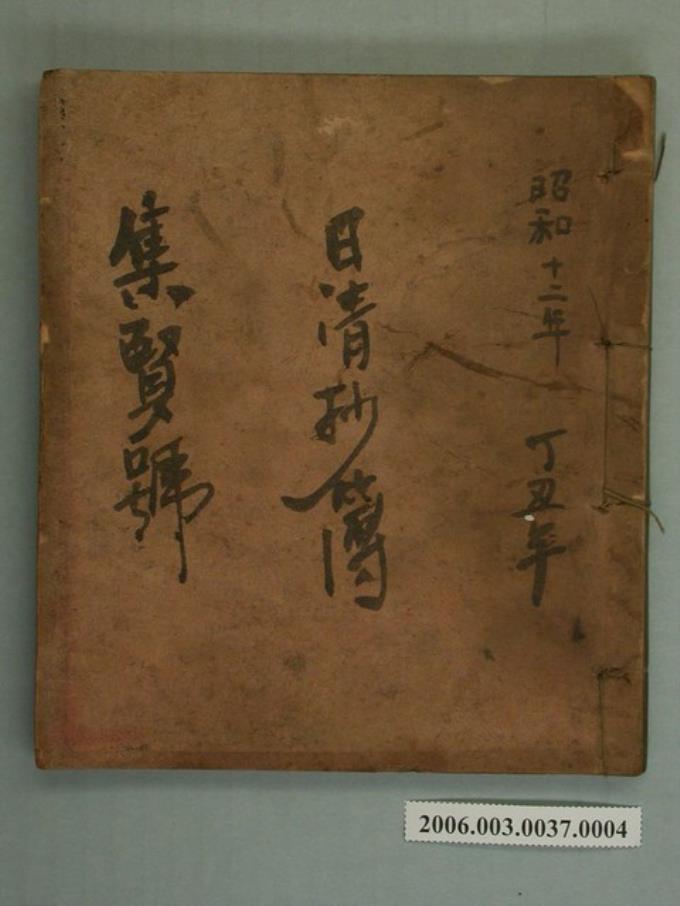 昭和十二年 丁丑年
日清抄簿
集賢號
2006.003.0037.0004